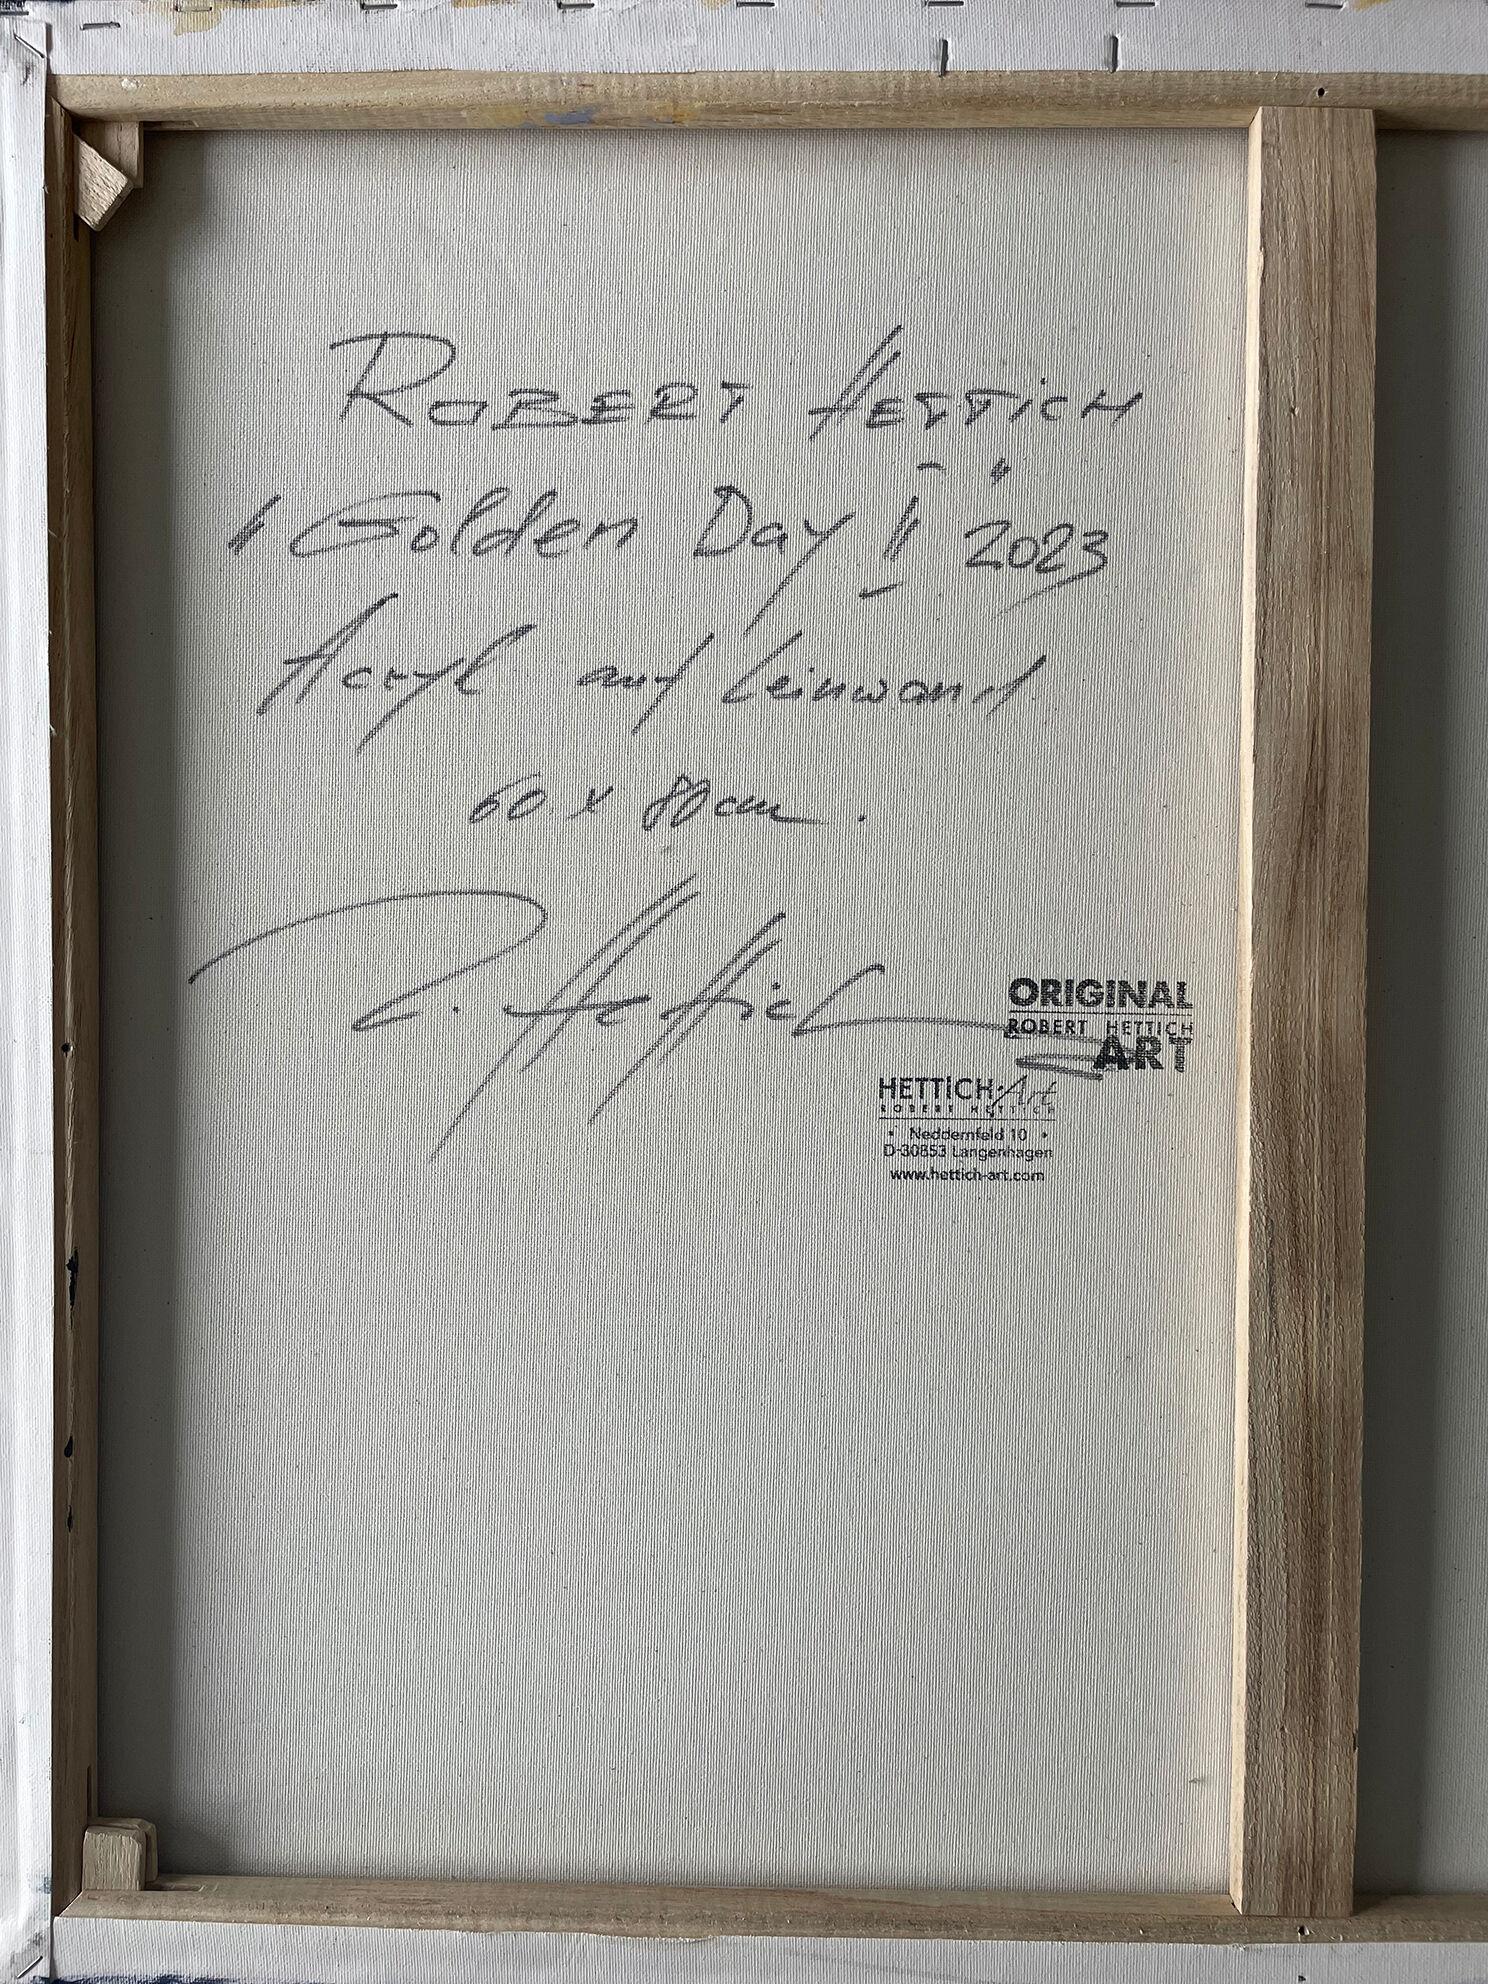 ROBERT HETTiCH
"Golden Day II" 2023
Acryl auf Leinwand
60 x 80 cm.
R. Hettich
ORIGINAL
ROBERT HETTICH
ART
HETTiCH Art
ROBERT HETTICH
• Neddernfeld 10 •
D-30853 Langenhagen
www.hettich-art.com